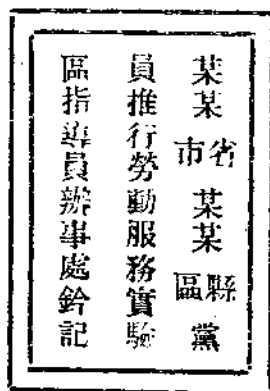 某某省市某某縣區黨
員推行勞動服務實驗
區指導員辦事處鈐記